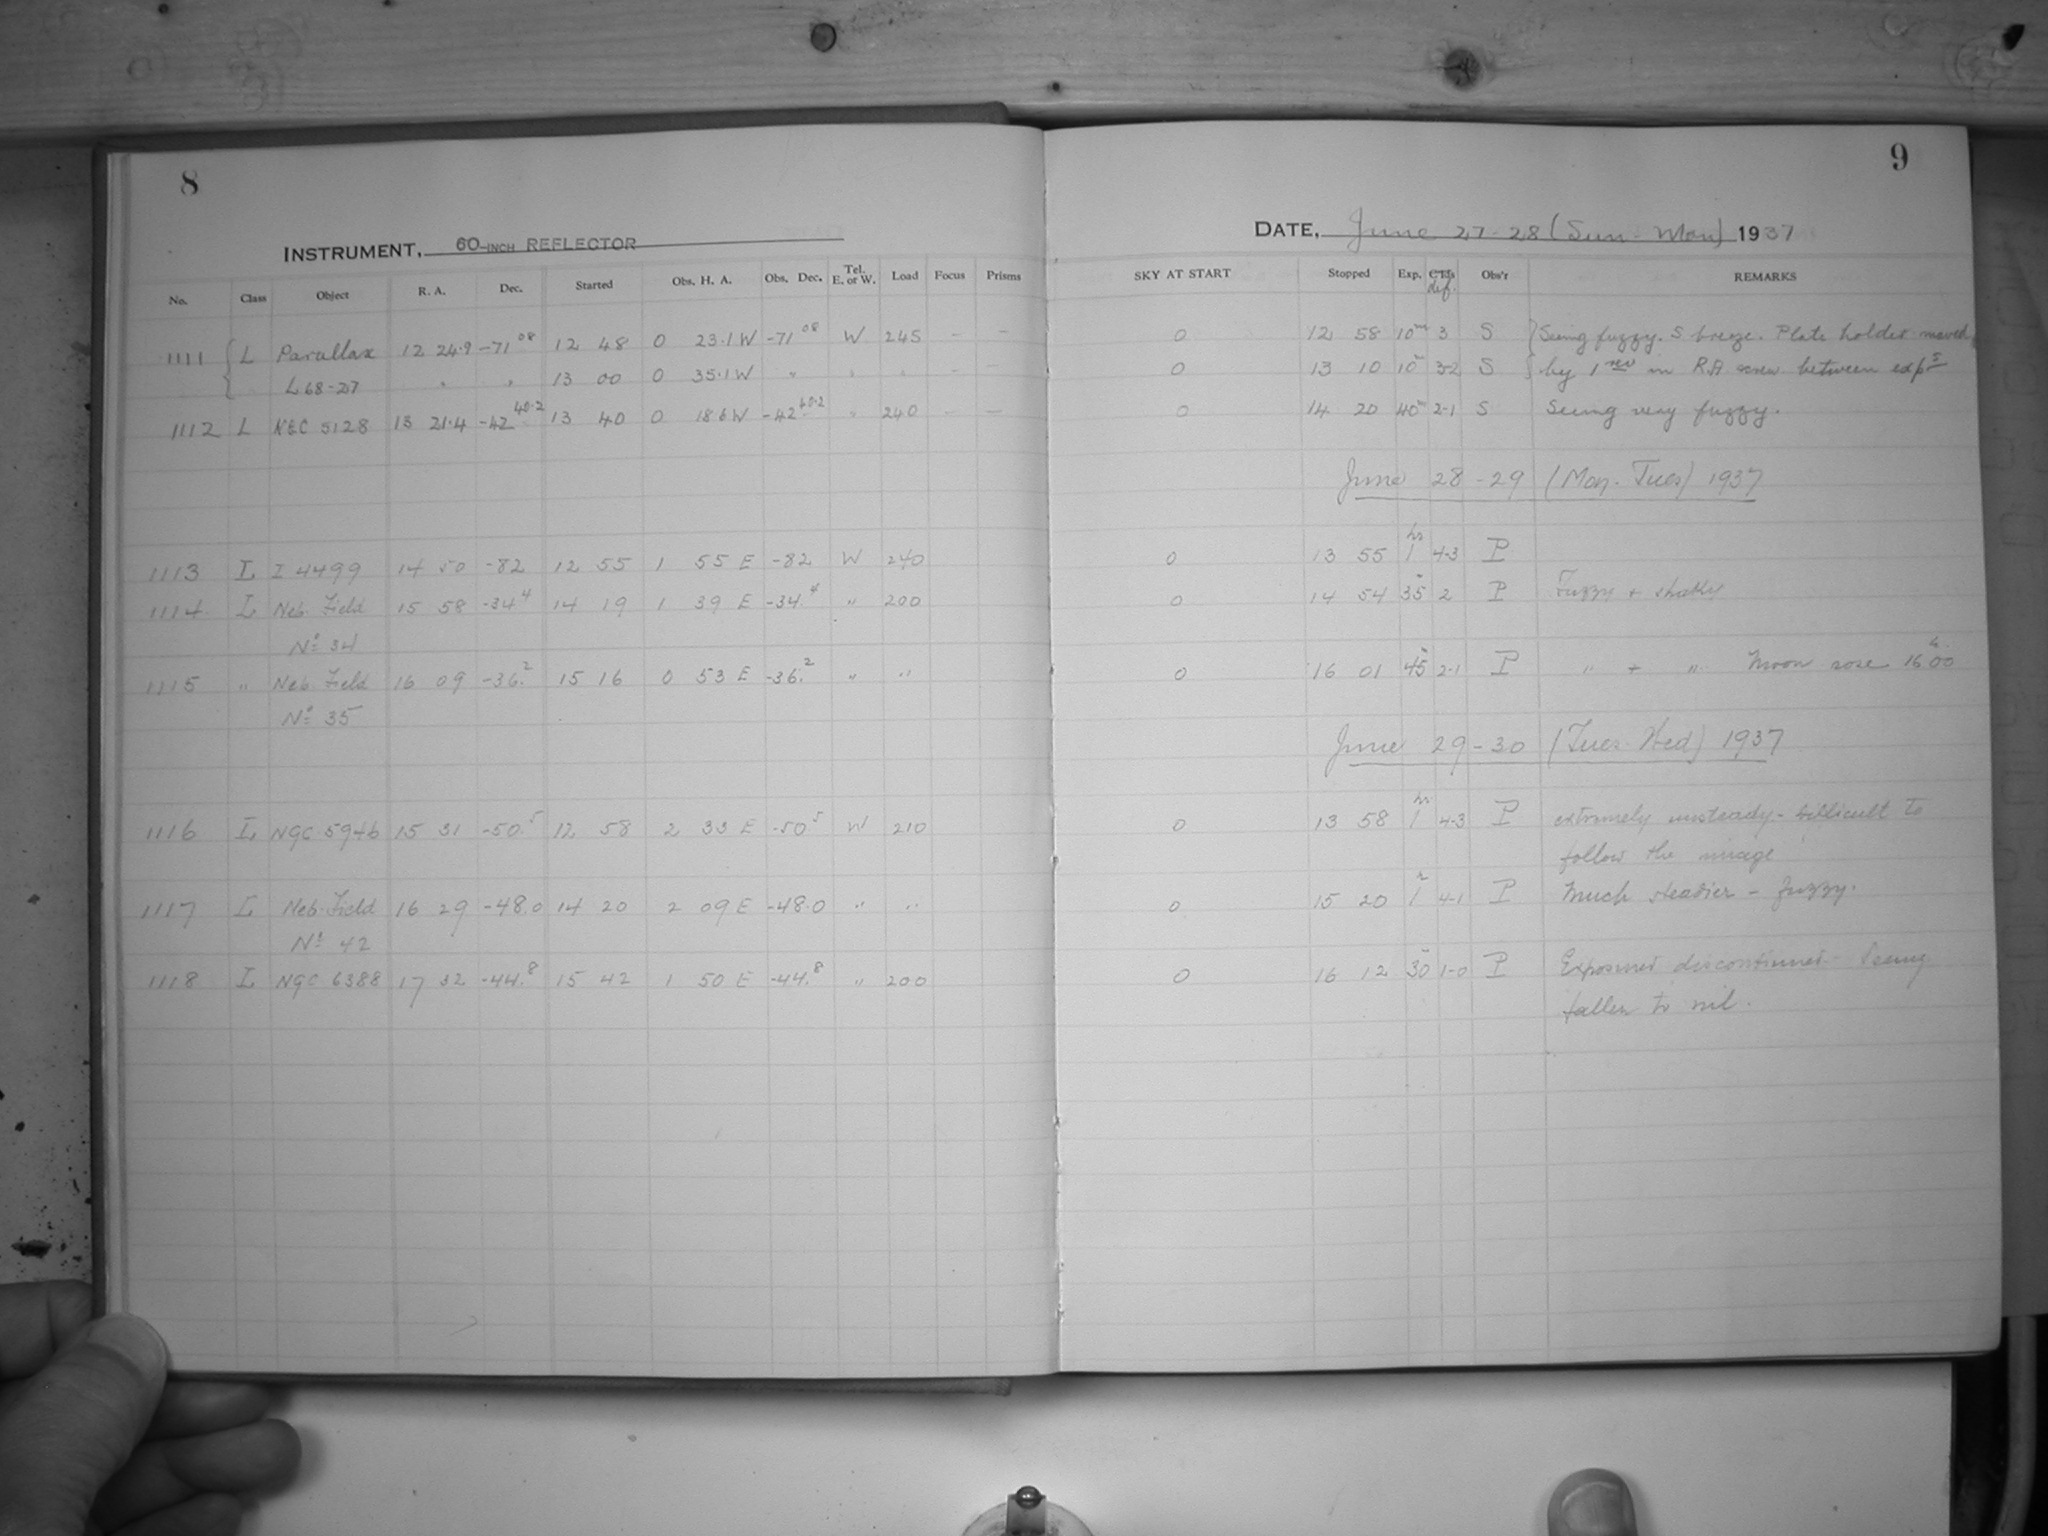 8
INSTRUMENT, 60-INCH REFLECTOR
No. Class Object R. A. Dec. Started Obs. H. A. Obs. Dec. Tel. E. or W. Load Focus Prisms
1111 L Parallax 12 24.9 -71 08 12 48 0 23.1 W -71 08 W 245 - -
L 68-27 " " 13 00 0 35.1 W " " " - -
1112 L NGC 5128 13 21.4 -42 40.2 13 40 0 18.6 W -42 40.2 " 240 - -
1113 L I 4499 14 50 -82 12 55 1 55 E -82 W 240
1114 L Neb. Field 15 58 -34.4 14 19 1 39 E -34.4 " 200
No 34
1115 " Neb. Field 16 09 -36.2 15 16 0 53 E -36.2 " "
No 35
1116 L NGC 5946 15 31 -50.5 12 58 2 33 E -50.5 W 210
1117 L Neb. Field 16 29 -48.0 14 20 2 09 E -48.0 " "
No 42
1118 L NGC 6388 17 32 -44.8 15 42 1 50 E -44.8 " 200
9
DATE, June 27-28 (Sun-Mon) 1937
SKY AT START Stopped Exp. def. Obs'r REMARKS
0 12 58 10m 3 S Seeing fuzzy. S breeze. Plate holder moved
0 13 10 10m 3-2 S by 1 rev in RA screw between exps
0 14 20 40m 2-1 S Seeing very fuzzy.
June 28-29 (Mon. Tues) 1937
0 13 55 1hr 4-3 P
0 14 54 35m 2 P Fuzzy + shaky
0 16 01 45m 2-1 P " + " Moon rose 16h 00
June 29-30 (Tues-Wed) 1937
0 13 58 1hr 4-3 P extremely unsteady - difficult to
follow the image
0 15 20 1h 4-1 P Much steadier - fuzzy.
0 16 12 30m 1-0 P Exposure discontinued - Seeing
fallen to nil.